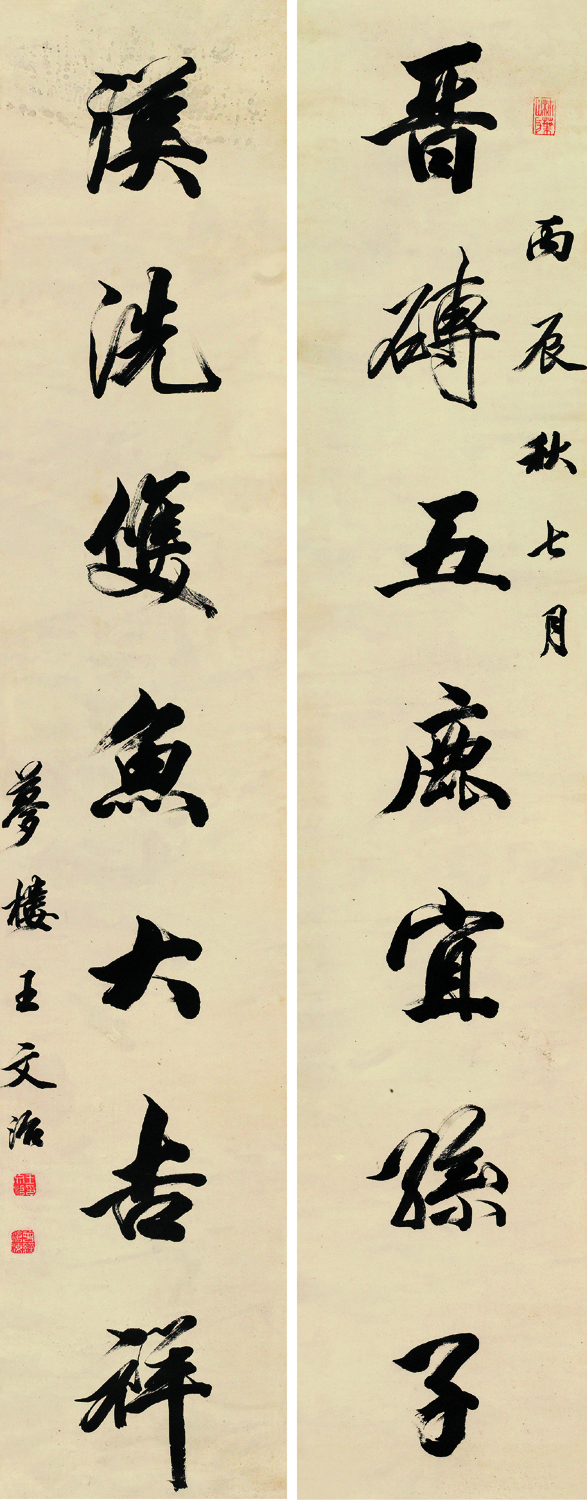 丙辰秋七月
晋磚五鹿宜孫子
漢洗雙魚大吉祥
夢樓王文治